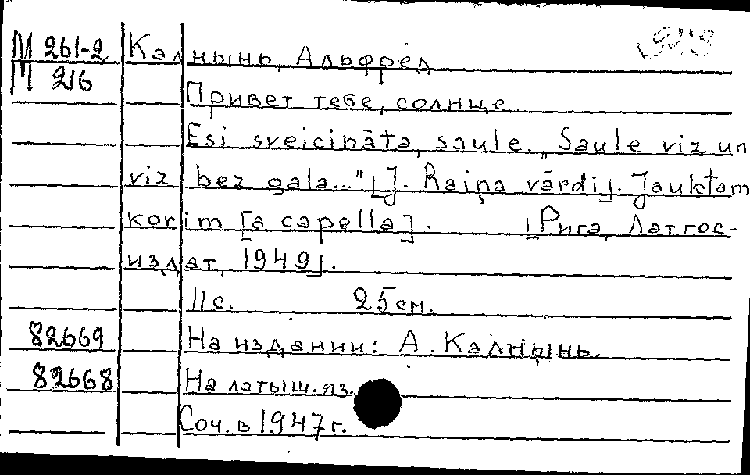 М 261-2 Калнынь, Альфред
М 216
Привет тебе, солнце
Esi sveicināta, saule. „Saule viz un
viz bez gala..." [J. Raiņa vārdi]. Jauktam
korim [a capella]. [Рига, Латгос-
издат, 1949].
11с. 25см.
82669 На издании: А. Калнынь.
82668 На латыш. яз.
Соч. в 1947 г.